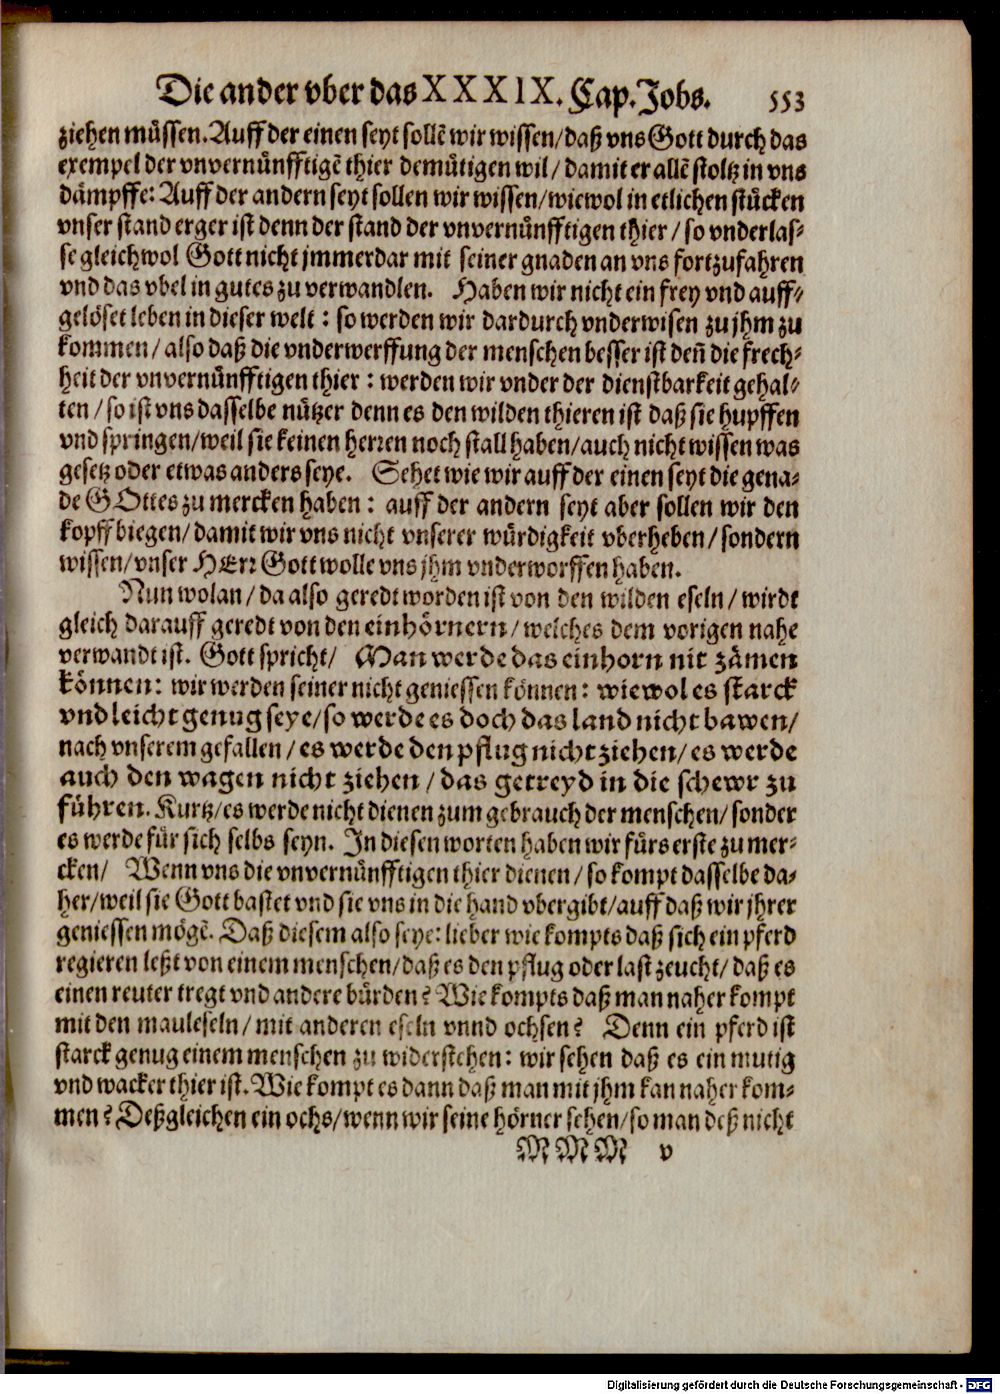 Die ander vber das XXXIX. Cap. Jobs. 553
ziehen müssen. Auff der einen seyt sollẽ wir wissen/ daß vns Gott durch das
exempel der vnvernünfftigẽ thier demütigen wil/ damit er allẽ stoltz in vns
dämpffe: Auff der andern seyt sollen wir wissen/ wiewol in etlichen stücken
vnser stand erger ist denn der stand der vnvernünfftigen thier/ so vnderlas-
se gleichwol Gott nicht jmmerdar mit seiner gnaden an vns fortzufahren
vnd das vbel in gutes zu verwandlen. Haben wir nicht ein frey vnd auff-
gelöset leben in dieser welt: so werden wir dardurch vnderwisen zu jhm zu
kommen/ also daß die vnderwerffung der menschen besser ist deñ die frech-
heit der vnvernünfftigen thier: werden wir vnder der dienstbarkeit gehal-
ten/ so ist vns dasselbe nützer denn es den wilden thieren ist daß sie hupffen
vnd springen/ weil sie keinen herren noch stall haben/ auch nicht wissen was
gesetz oder etwas anders seye. Sehet wie wir auff der einen seyt die gena-
de GOttes zu mercken haben: auff der andern seyt aber sollen wir den
kopff biegen/ damit wir vns nicht vnserer würdigkeit vberheben/ sondern
wissen/ vnser HErr Gott wolle vns jhm vnderworffen haben.
Nun wolan/ da also geredt worden ist von den wilden eseln/ wirdt
gleich darauff geredt von den einhörnern/ welches dem vorigen nahe
verwandt ist. Gott spricht/ Man werde das einhorn nit zämen
können: wir werden seiner nicht geniessen können: wiewol es starck
vnd leicht genug seye/ so werde es doch das land nicht bawen/
nach vnserem gefallen/ es werde den pflug nicht ziehen/ es werde
auch den wagen nicht ziehen/ das getreyd in die schewr zu
führen. Kurtz/ es werde nicht dienen zum gebrauch der menschen/ sonder
es werde für sich selbs seyn. In diesen worten haben wir fürs erste zu mer-
cken/ Wenn vns die vnvernünfftigen thier dienen/ so kompt dasselbe da-
her/ weil sie Gott bastet vnd sie vns in die hand vbergibt/ auff daß wir jhrer
geniessen mögẽ. Daß diesem also seye: lieber wie kompts daß sich ein pferd
regieren leßt von einem menschen/ daß es den pflug oder last zeucht/ daß es
einen reuter tregt vnd andere bürden? Wie kompts daß man naher kompt
mit den mauleseln/ mit anderen eseln vnnd ochsen? Denn ein pferd ist
starck genug einem menschen zu widerstehen: wir sehen daß es ein mutig
vnd wacker thier ist. Wie kompt es dann daß man mit jhm kan naher kom-
men? Deßgleichen ein ochs/ wenn wir seine hörner sehen/ so man deß nicht
MMM v
Digitalisierung gefördert durch die Deutsche Forschungsgemeinschaft - DFG